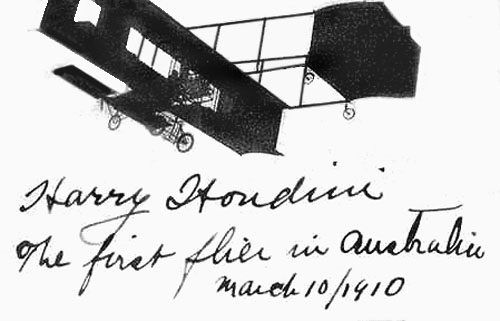 Harry Houdini
The first flier in Australia
March 10/1910